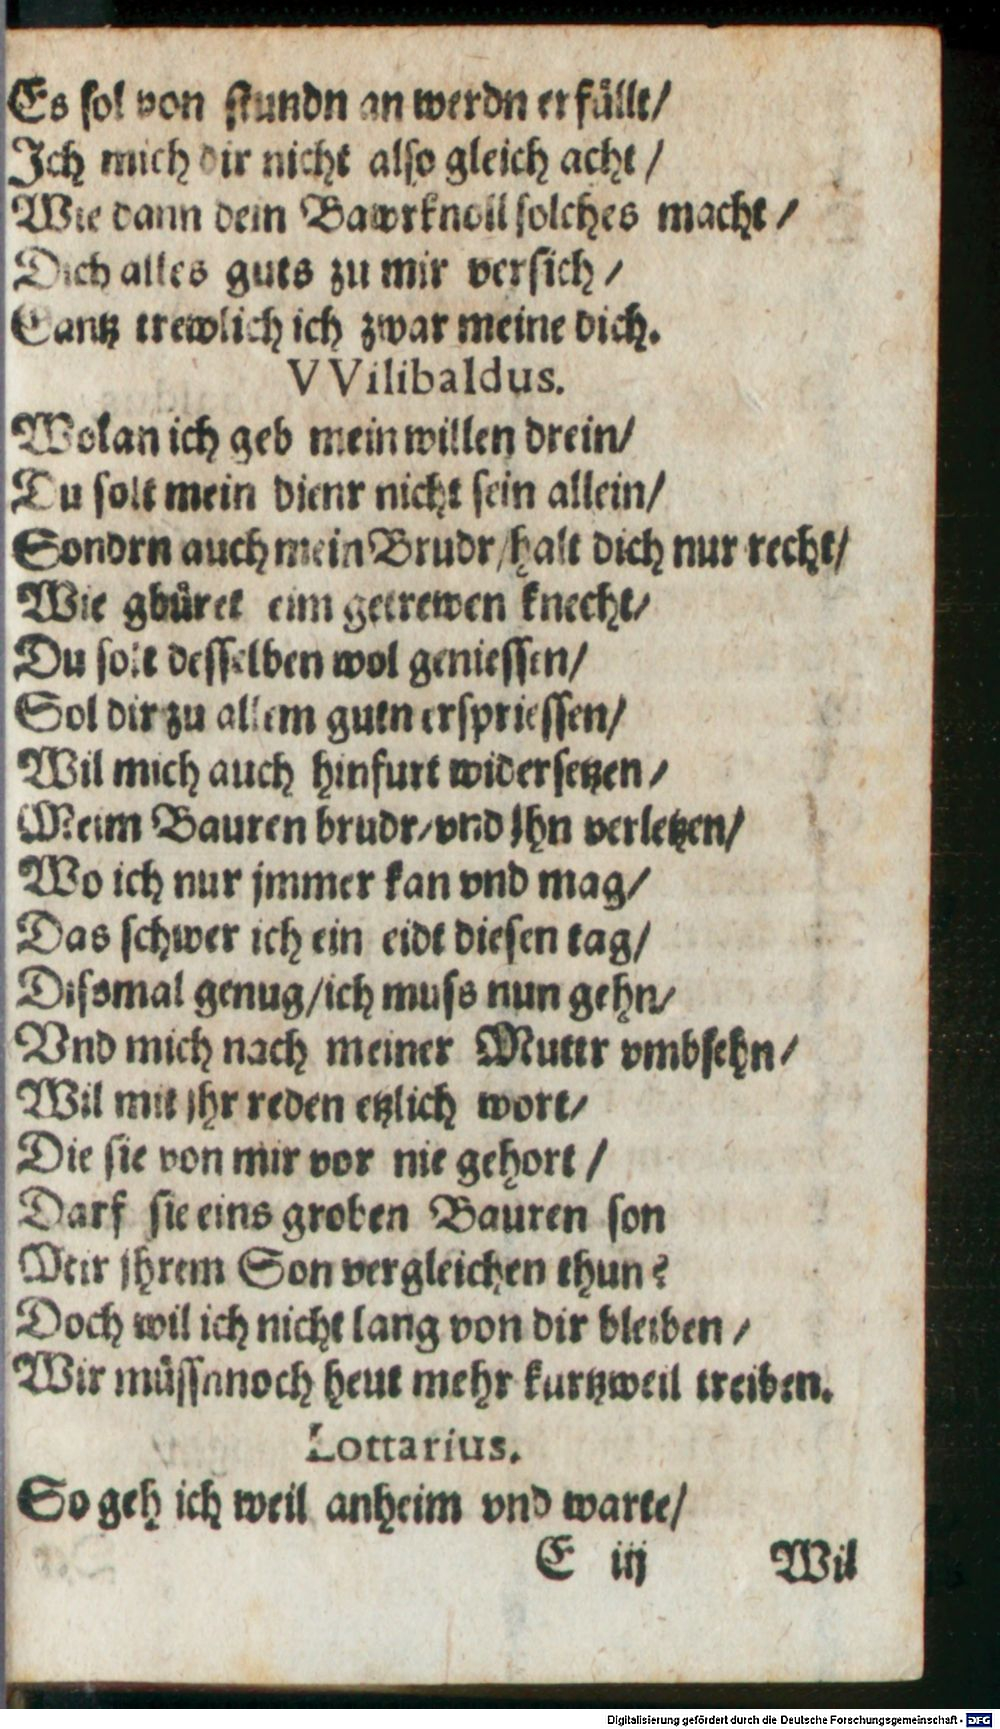 Es sol von stundn an werdn erfüllt/
Ich mich dir nicht also gleich acht /
Wie dann dein Bawrknoll solches macht /
Dich alles guts zu mir versich /
Gantz trewlich ich zwar meine dich.
VVilibaldus.
Wolan ich geb mein willen drein/
Du solt mein dienr nicht sein allein/
Sondrn auch mein Brudr/halt dich nur recht/
Wie gbüret eim getrewen knecht/
Du solt desselben wol geniessen/
Sol dir zu allem gutn erspriessen/
Wil mich auch hinfurt widersetzen /
Meim Bauren brudr/vnd jhn verletzen/
Wo ich nur jmmer kan vnd mag/
Das schwer ich ein eidt diesen tag/
Dissmal genug/ich muss nun gehn/
Vnd mich nach meiner Mutter vmbsehn /
Wil mit jhr reden etzlich wort/
Die sie von mir vor nie gehort /
Darf sie eins groben Bauren son
Mir jhrem Son vergleichen thun?
Doch wil ich nicht lang von dir bleiben /
Wir müssn noch heut mehr kurtzweil treiben.
Lottarius.
So geh ich weil anheim vnd warte/
E iij Wil
Digitalisierung gefördert durch die Deutsche Forschungsgemeinschaft - DFG